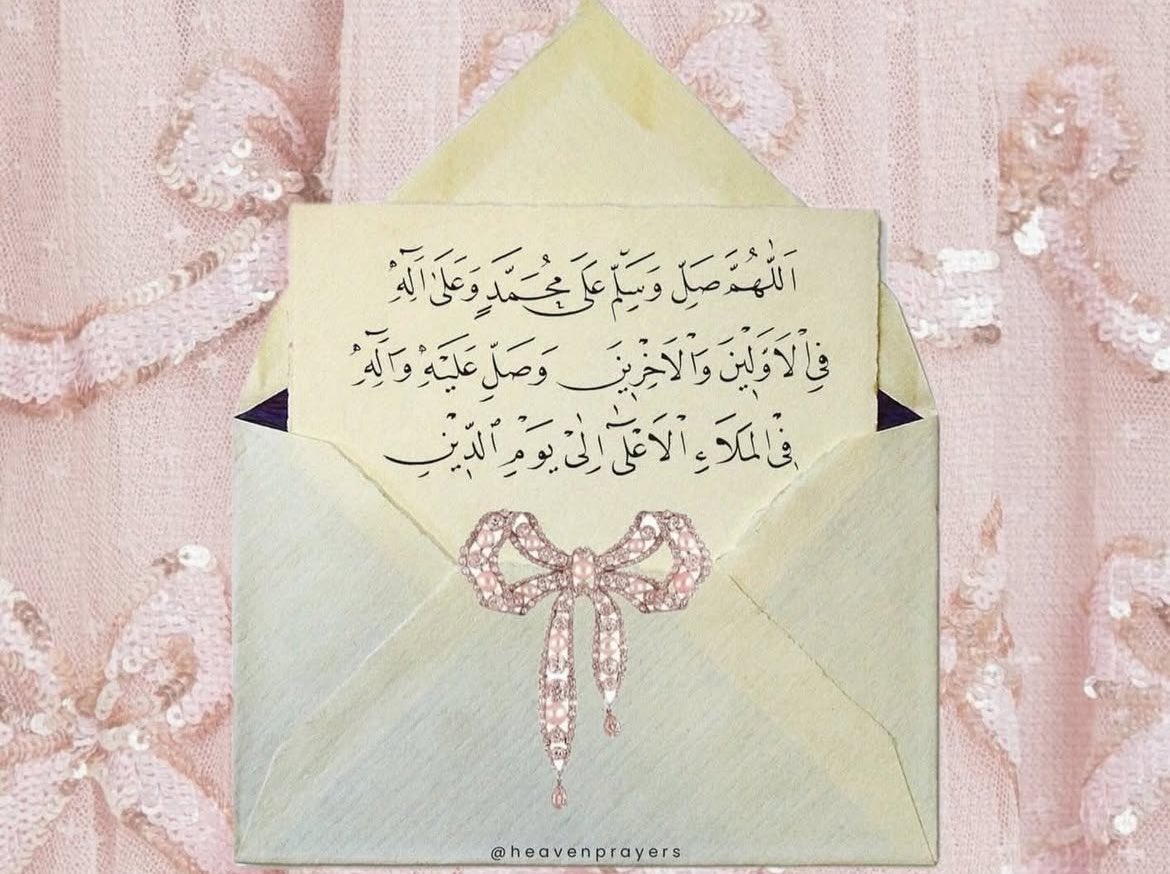 اَللّٰهُمَّ صَلِّ وَسَلِّمْ عَلَى مُحَمَّدٍ وَعَلٰى اٰلِهٖ
فِي الْاَوَّلِيْنَ وَالْاٰخِرِيْنَ وَصَلِّ عَلَيْهِ وَاٰلِهٖ
فِي الْمَلَاءِ الْاَعْلٰى اِلٰى يَوْمِ الدِّيْنِ
@heavenprayers